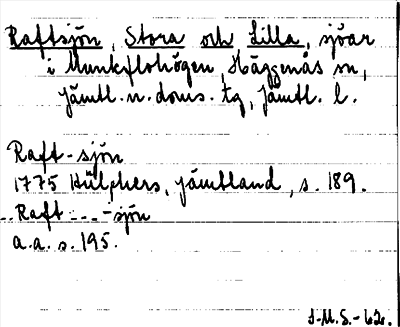 Raftsjön, Stora och Lilla, sjöar
i Munkflohögen, Häggenås sn,
Jämtl. n. doms. tg, Jämtl. l.
Raft-sjön
1775 Hülphers, Jämtland, s. 189.
..Raft ... -sjön
a.a. s. 195.
I.M.S.-62.